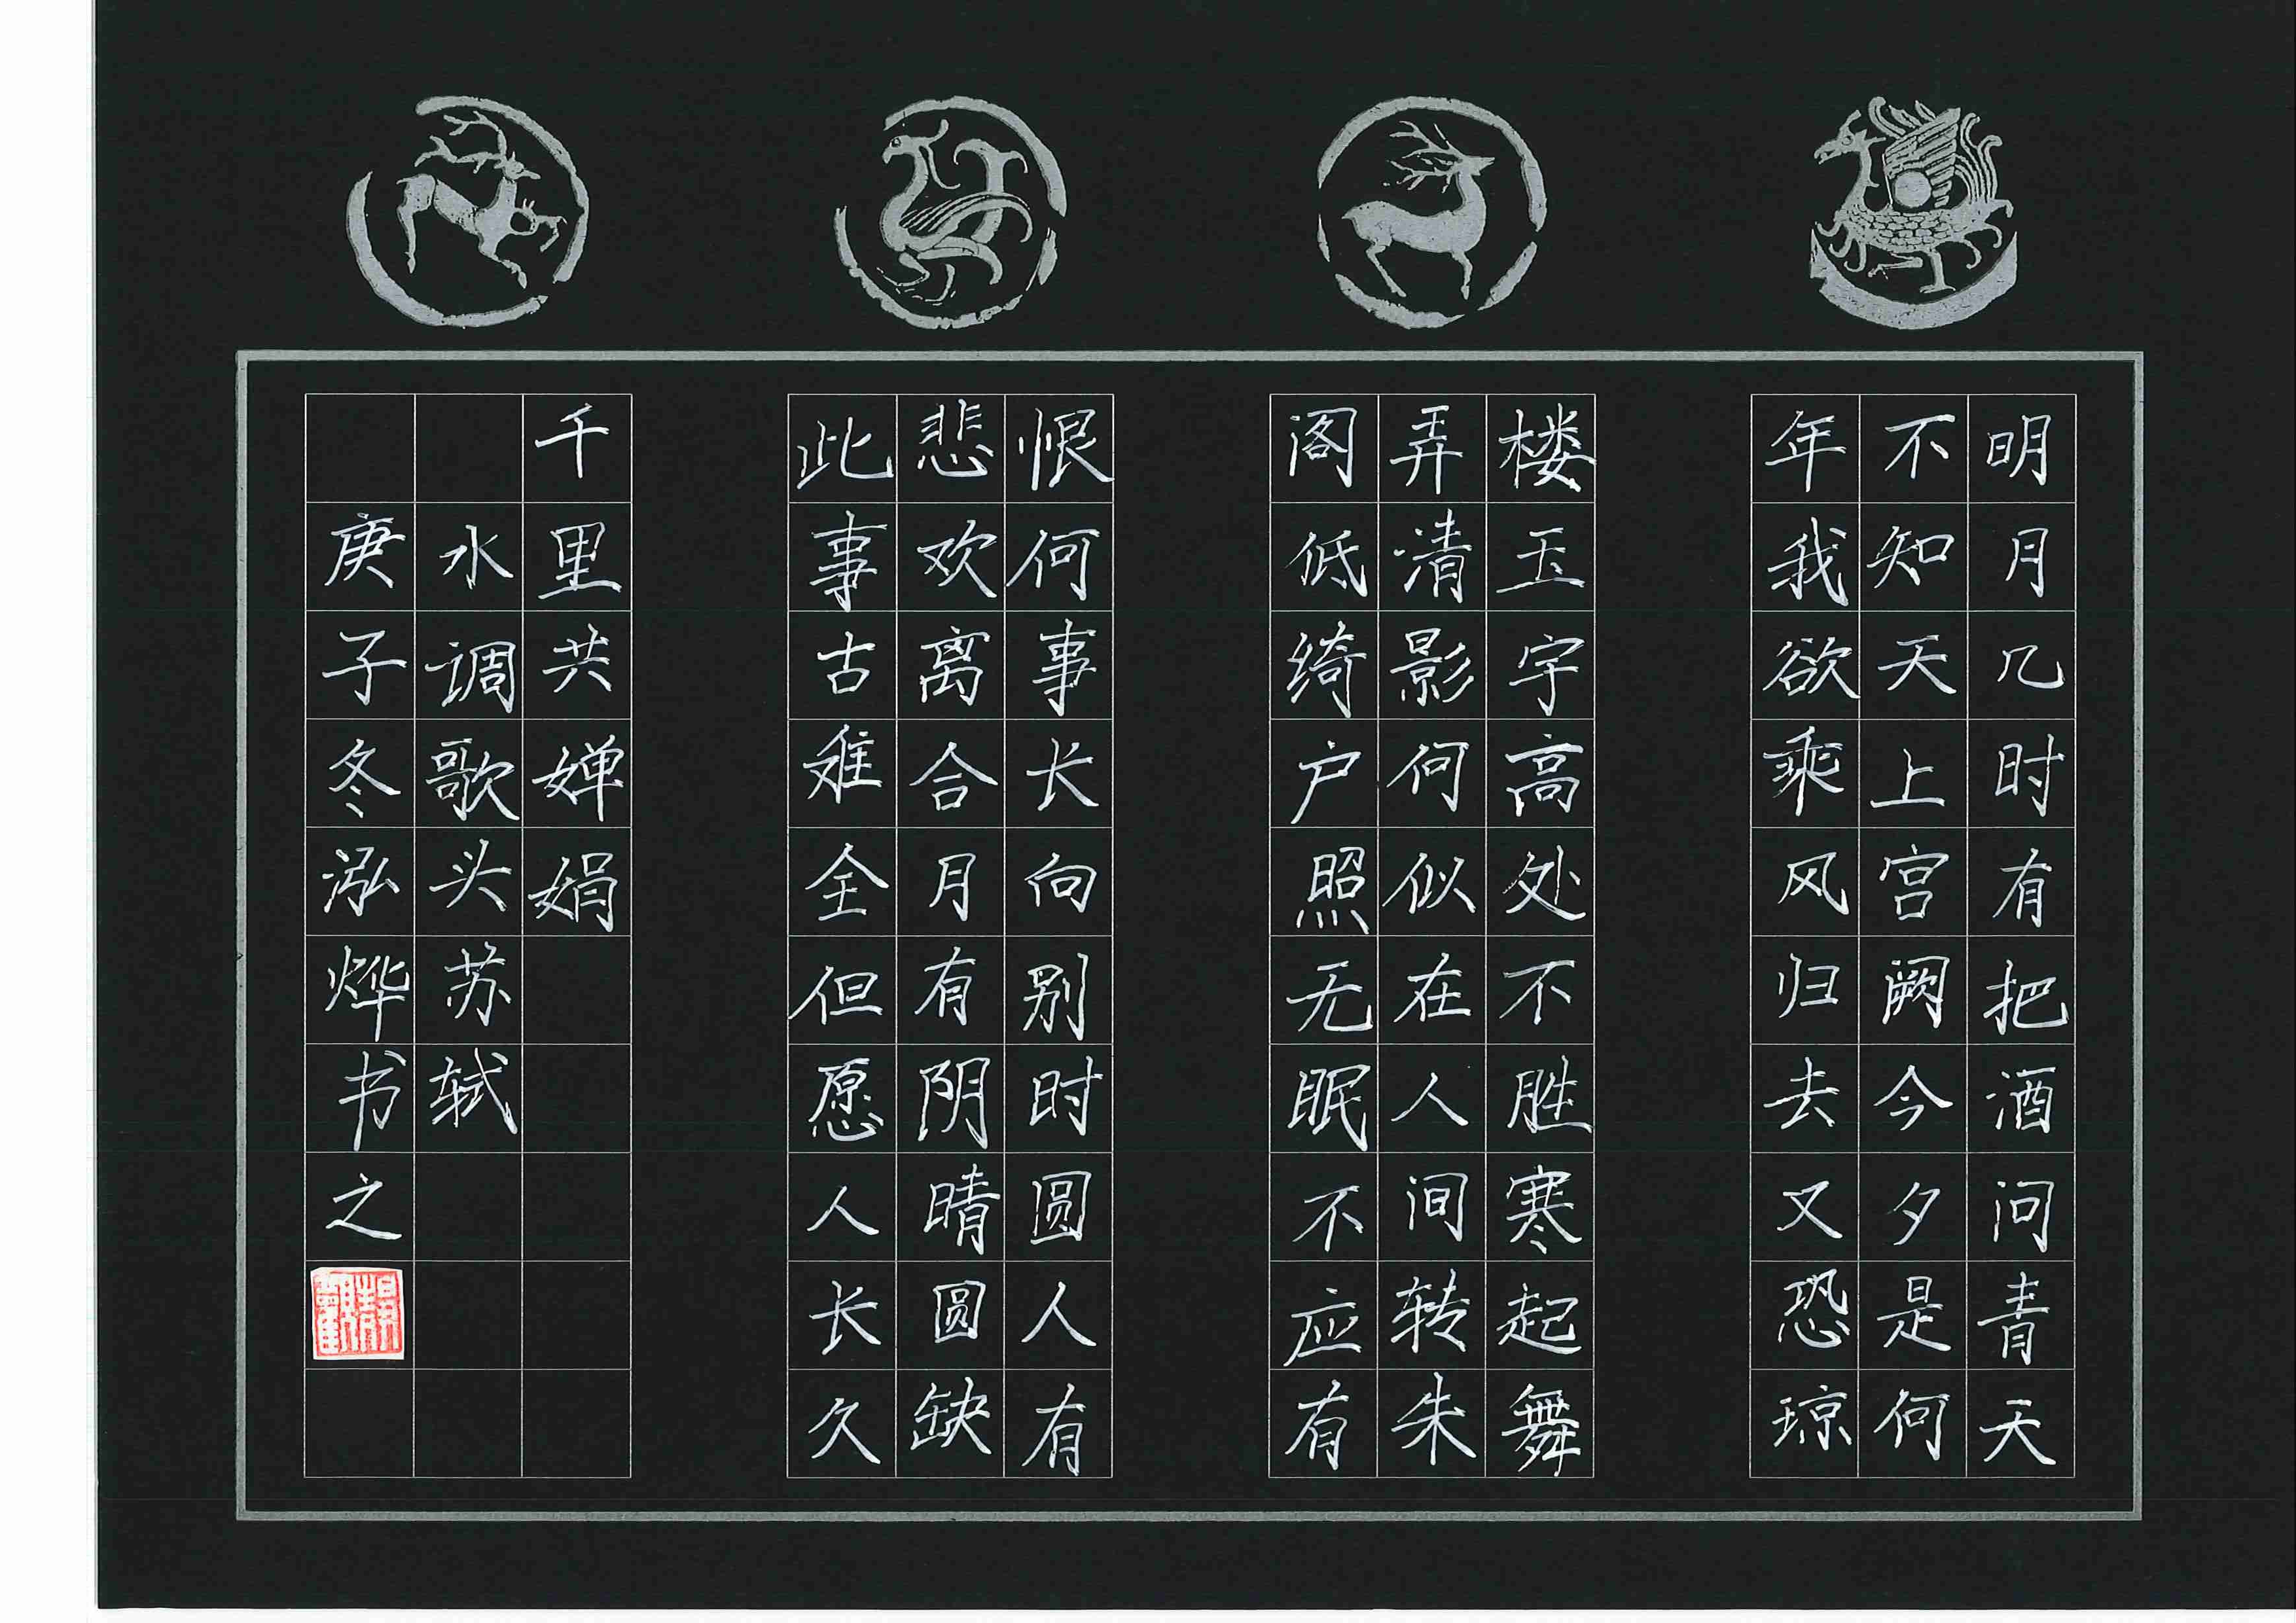 明月几时有把酒问青天
不知天上宫阙今夕是何
年我欲乘风归去又恐琼
楼玉宇高处不胜寒起舞
弄清影何似在人间转朱
阁低绮户照无眠不应有
恨何事长向别时圆人有
悲欢离合月有阴晴圆缺
此事古难全但愿人长久
千里共婵娟
水调歌头苏轼
庚子冬泓烨书之